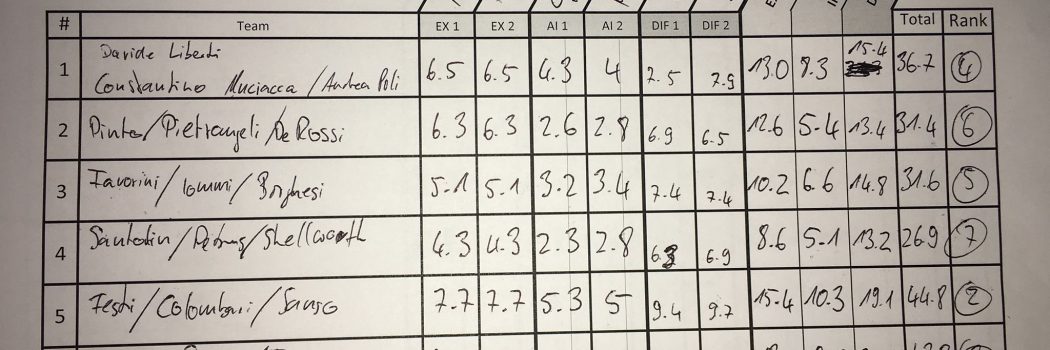 # Team EX 1 EX 2 AI 1 AI 2 DIF 1 DIF 2 Total Rank
1 Davide Liberti
Constantino Muciacca / Andrea Poli 6.5 6.5 4.3 4 7.5 7.9 13.0 8.3 15.4 36.7 4
2 Pinto / Pietrangeli / De Rossi 6.3 6.3 2.6 2.8 6.9 6.5 12.6 5.4 13.4 31.4 6
3 Favorini / Iommi / Borghesi 5.1 5.1 3.2 3.4 7.4 7.4 10.2 6.6 14.8 31.6 5
4 / / Shellworth 4.3 4.3 2.3 2.8 6.3 6.9 8.6 5.1 13.2 26.9 7
5 Festi / Colombari / Sanso 7.7 7.7 5.3 5 9.4 9.7 15.4 10.3 19.1 44.8 2